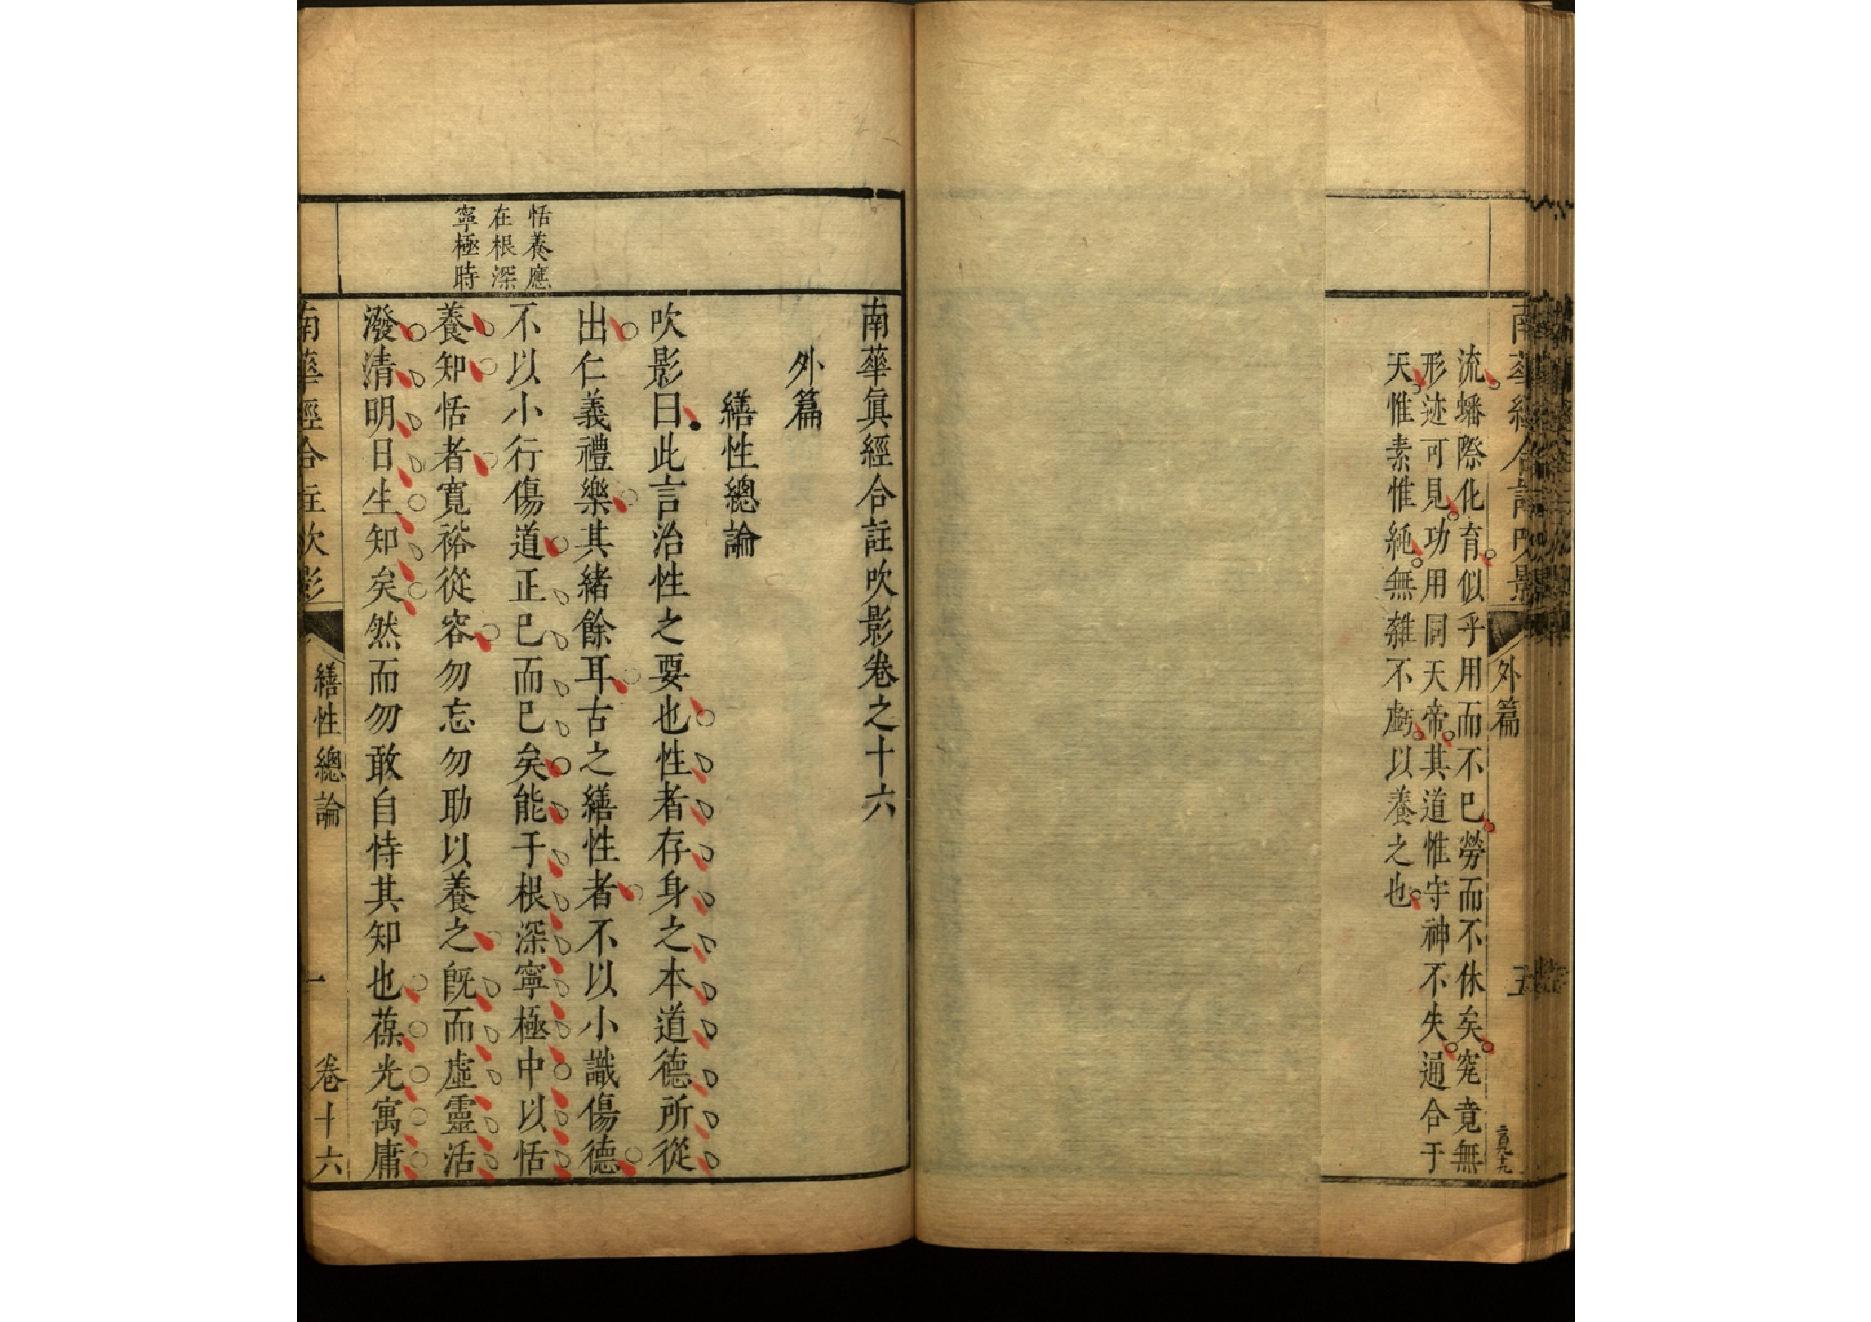 南華經合註吹影
外篇
五
流蟠際化育似乎用而不已勞而不休矣究竟無
形迹可見功用同天帝其道惟守神不失通合于
天惟素惟純無雜不虧以養之也
南華眞經合註吹影卷之十六
外篇
繕性總論
吹影曰此言治性之要也性者存身之本道德所從
出仁義禮樂其緒餘耳古之繕性者不以小識傷德
不以小行傷道正已而已矣能于根深寧極中以恬
養知恬者寬裕從容勿忘勿助以養之旣而虛靈活
潑清明日生知矣然而勿敢自恃其知也葆光寓庸
恬養應
在根深
寧極時
南華經合註吹影
繕性總論
一
卷十六